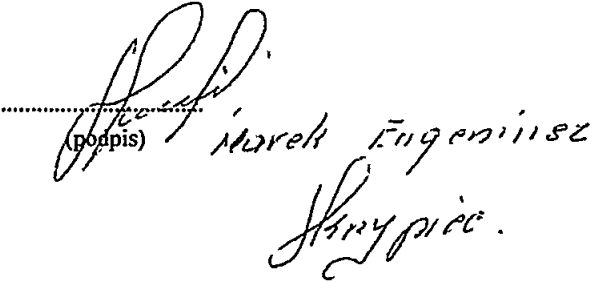 (podpis) Marek Eugeniusz
Skrypiec.